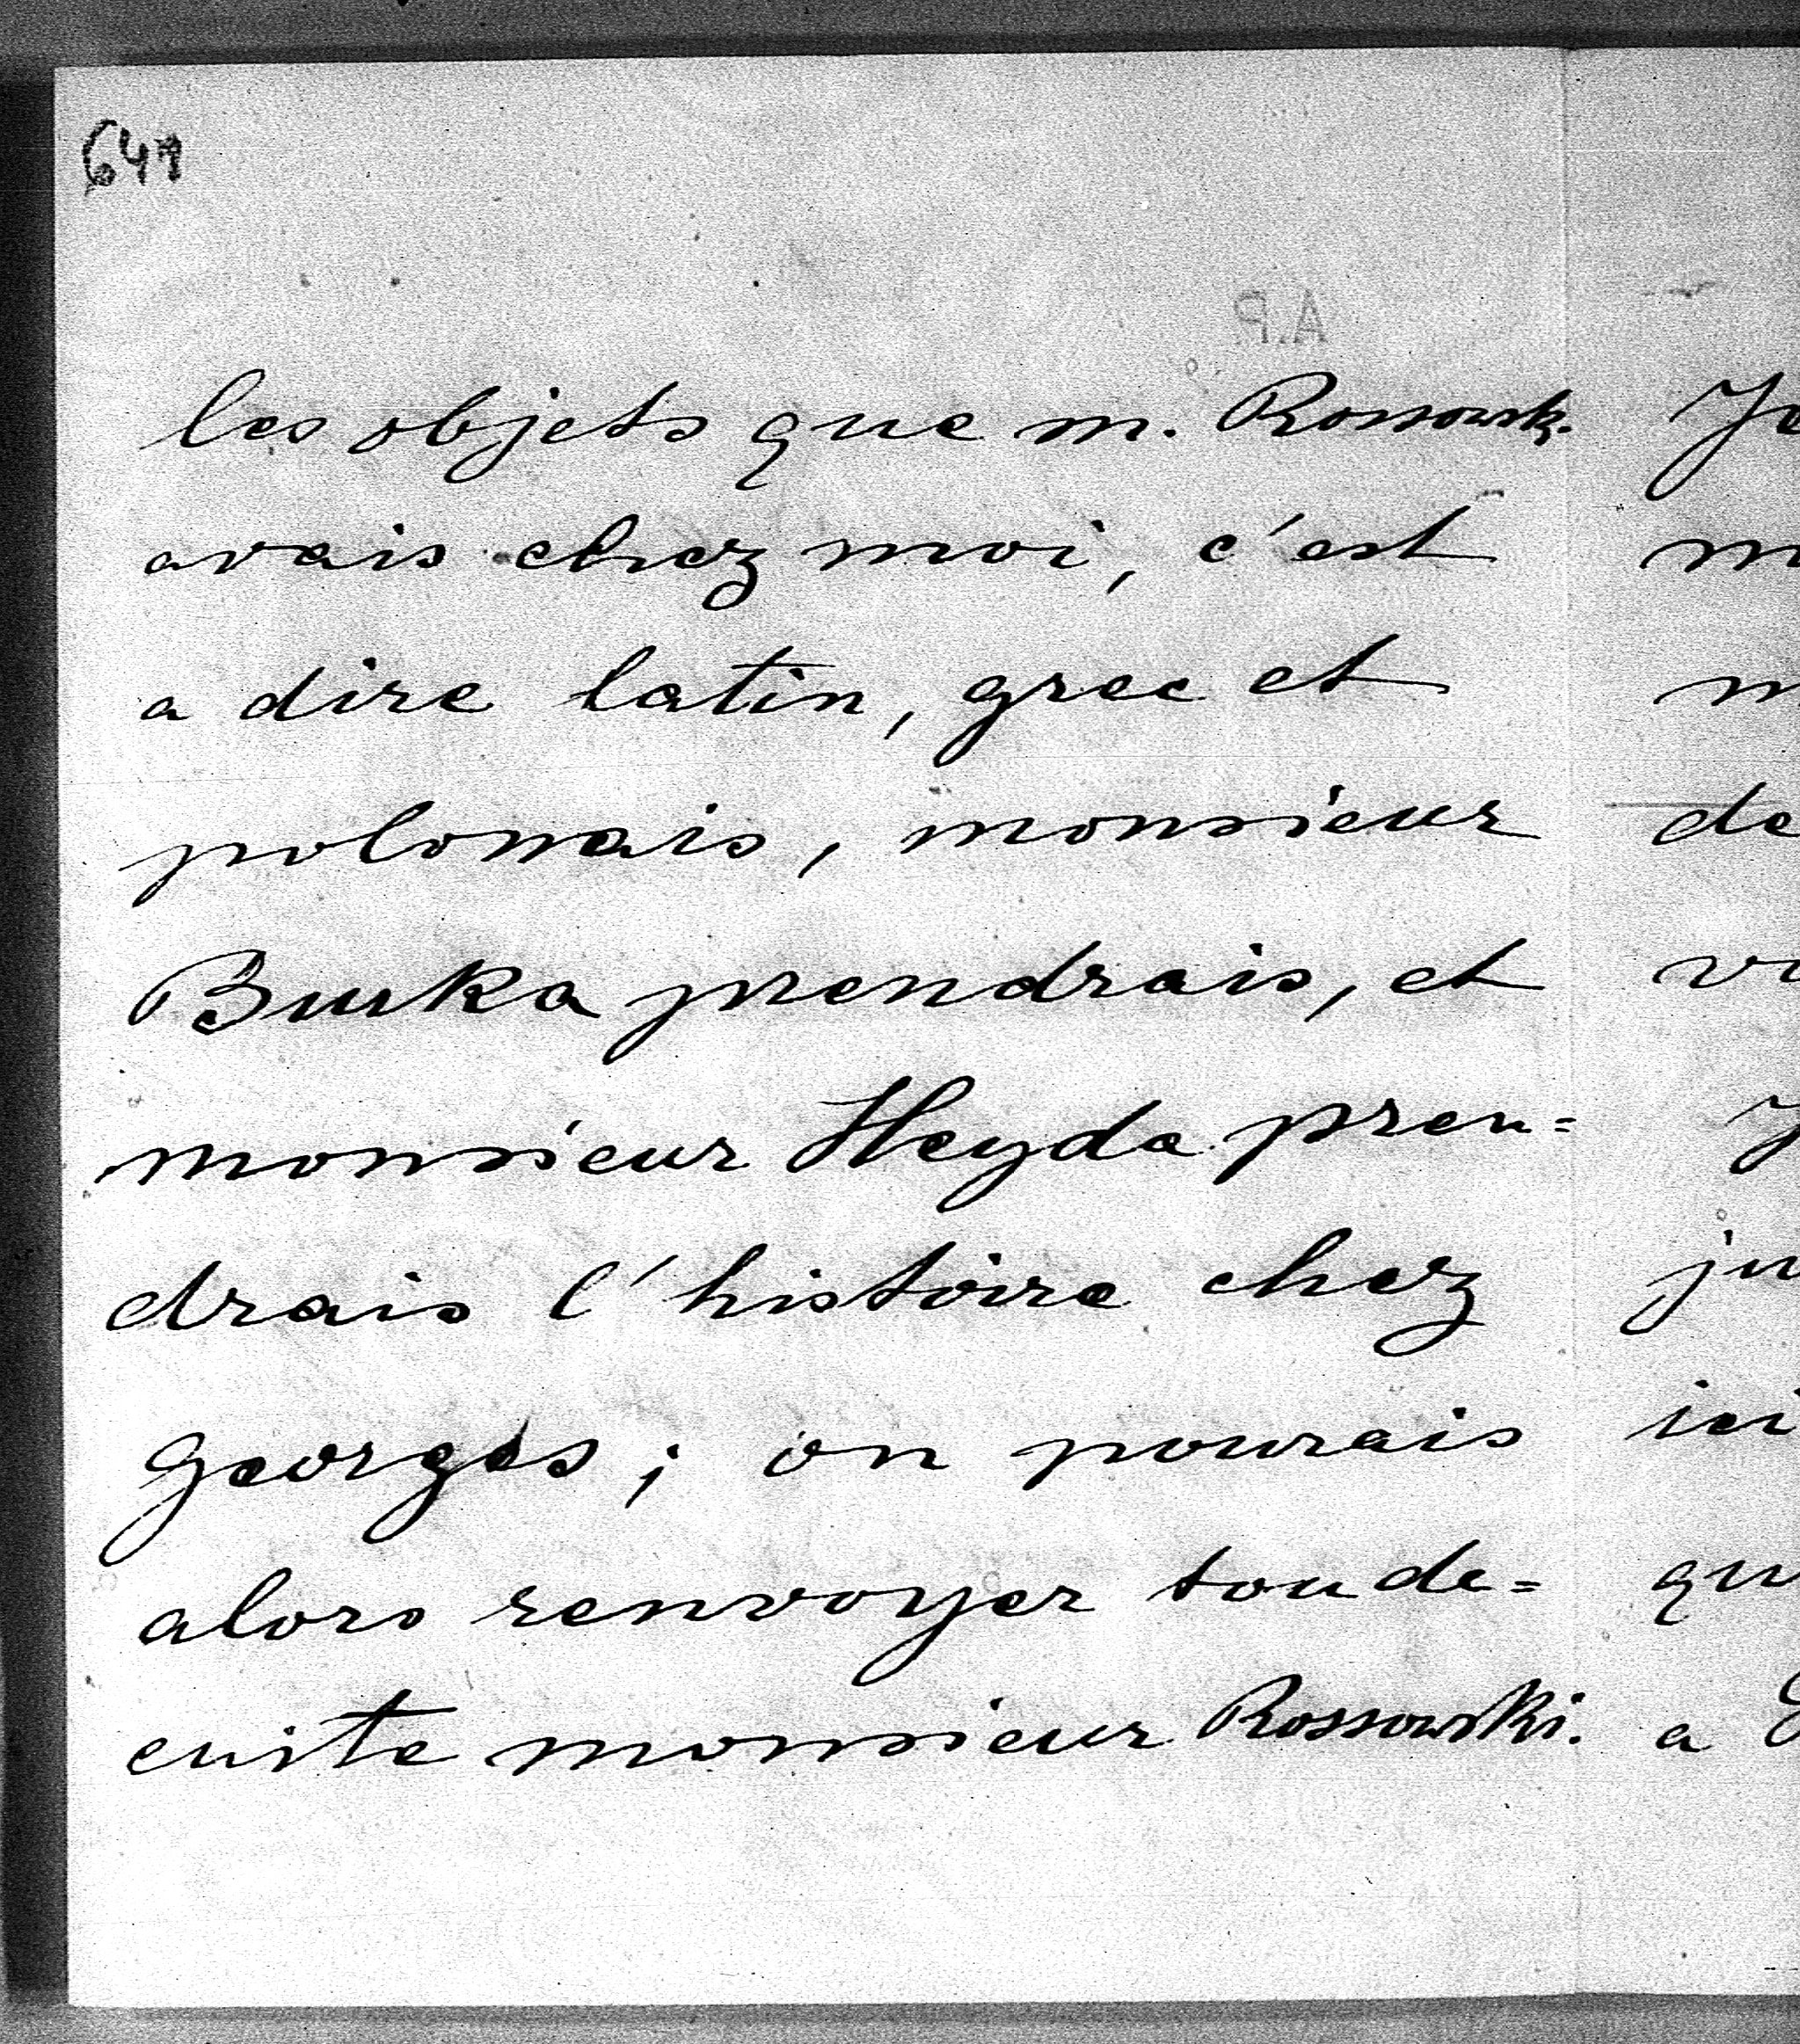 641
A.P.
les objets que m. Rossowsk.
avais chez moi, c'est
a dire latin, grec et
polonais, monsieur
Burka prendrais, et
monsieur Heyda pren=
drais l'histoire chez
Georges; on pourais
alors renvoyer toude=
cuite monsieur Rossowski.
Je
m
m
de
vo
J
ju
ici
qu
a G